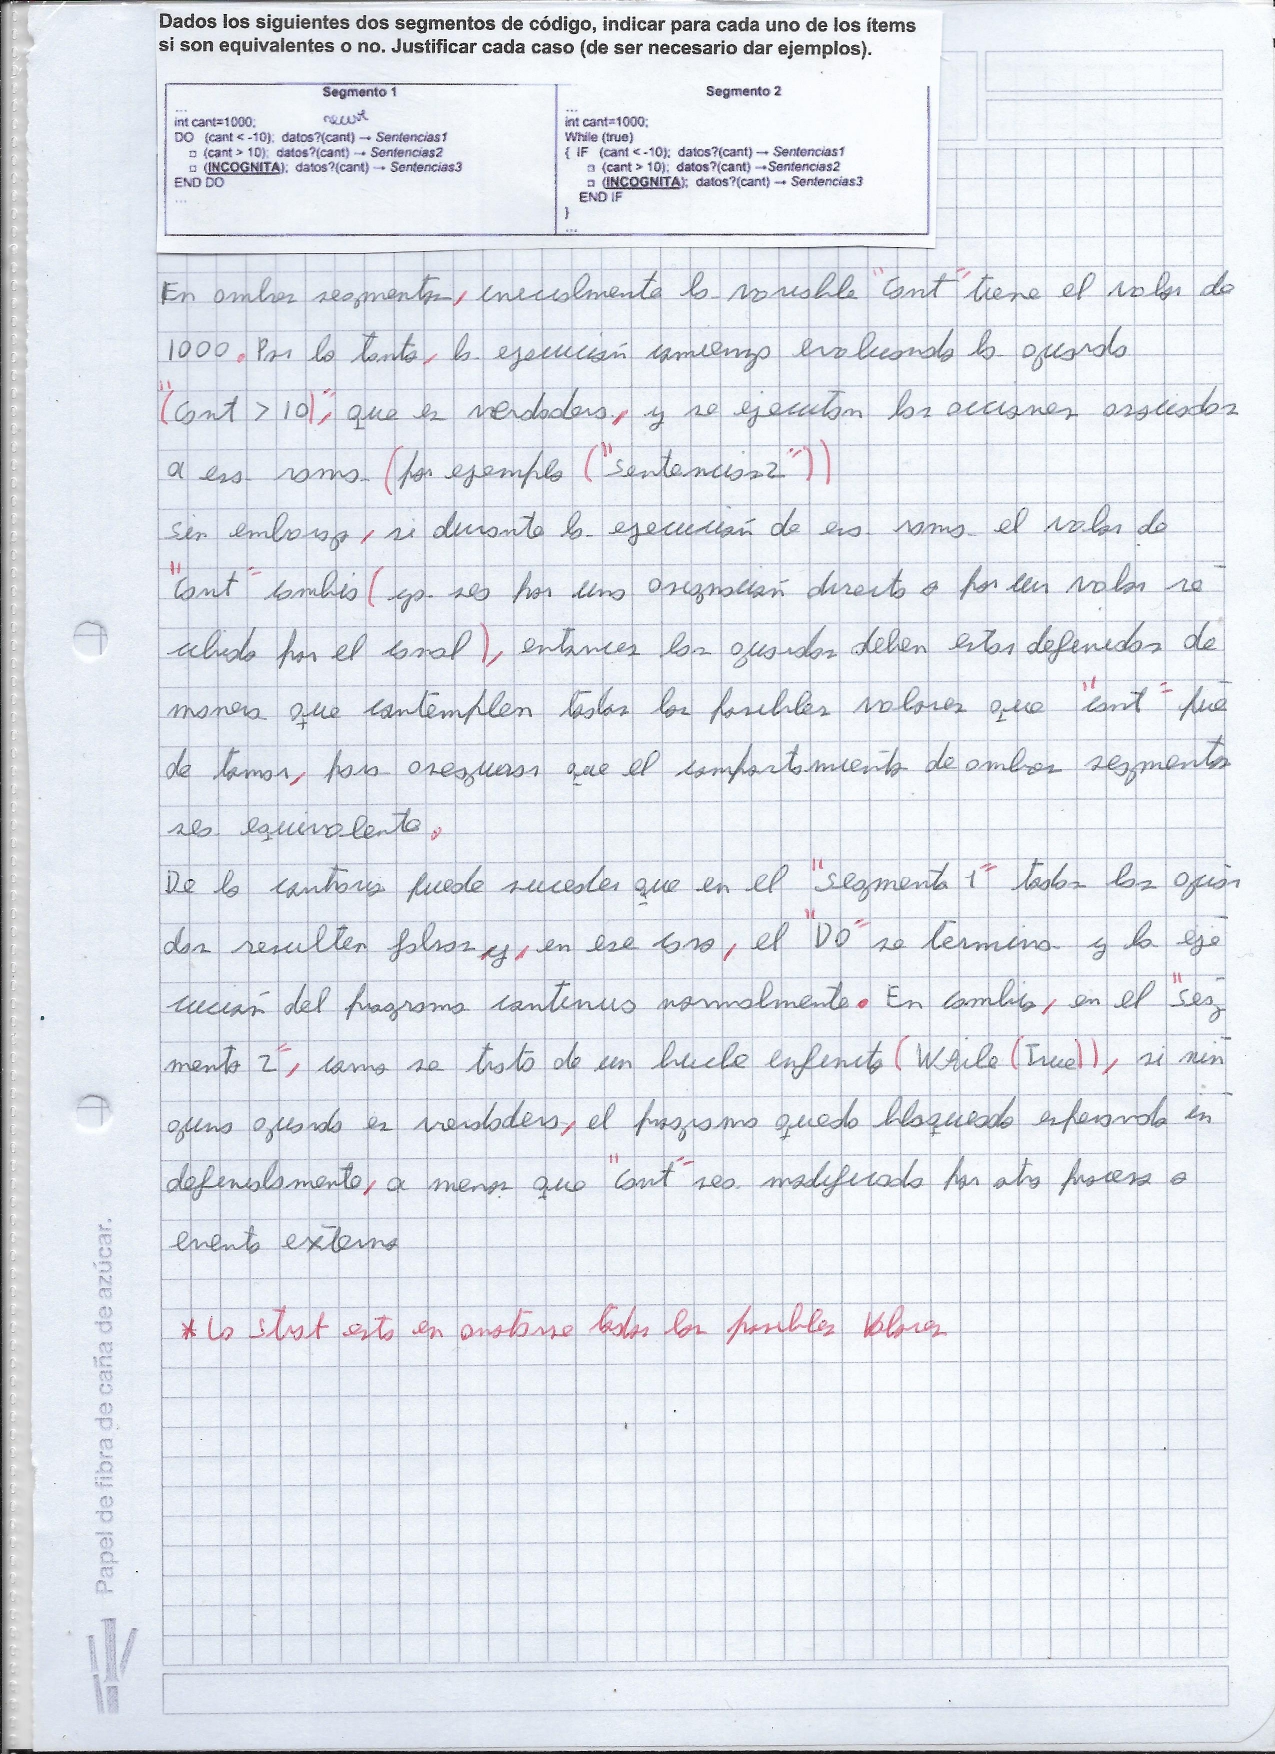 Dados los siguientes dos segmentos de código, indicar para cada uno de los ítems
si son equivalentes o no. Justificar cada caso (de ser necesario dar ejemplos).
Segmento 1
...
int cant=1000;
DO (cant < -10); datos?(cant) → Sentencias1
□ (cant > 10); datos?(cant) → Sentencias2
□ (INCOGNITA); datos?(cant) → Sentencias3
END DO
...
Segmento 2
...
int cant=1000;
While (true)
{ IF (cant < -10); datos?(cant) → Sentencias1
□ (cant > 10); datos?(cant) →Sentencias2
□ (INCOGNITA); datos?(cant) → Sentencias3
END IF
}
...
En ambos segmentos, inicialmente la variable "cant" tiene el valor de
1000. Por lo tanto, la ejecución comienza evaluando la guarda
"(cant > 10)", que es verdadera, y se ejecutan las acciones asociadas
a esa rama (por ejemplo ("sentencias2"))
sin embargo, si durante la ejecución de esa rama el valor de
"cant" cambia (ya sea por una asignación directa o por un valor re
cibido por el canal), entonces las guardas deben estar definidas de
manera que contemplen todos los posibles valores que "cant" pue
de tomar, para asegurar que el comportamiento de ambos segmentos
sea equivalente.
De lo contrario puede suceder que en el "segmento 1" todas las guar
das resulten falsas, y, en ese caso, el "DO" se termina y la eje
cución del programa continua normalmente. En cambio, en el "seg
mento 2", como se trata de un bucle infinito (While (True)), si nin
guna guarda es verdadera, el programa queda bloqueado esperando in
definidamente, a menos que "cant" sea modificada por otro proceso o
evento externo
* La esta en todos los posibles Valores
Papel de fibra de caña de azúcar.